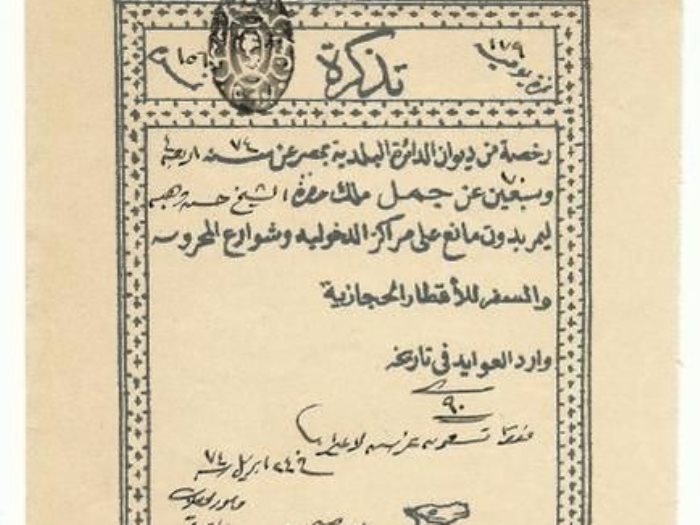 نمرة يومية ١١٧٩
تذكرة
١٥٦
رخصة من ديوان الدائرة البلدية بمصر عن سنة ٧٤ اربعة
وسبعين عن جمل ملك حضرة الشيخ حسن
ليمر بدون مانع على مراكز الدخوليه وشوارع المحروسه
والسفر للأقطار الحجازية
وارد العوايد فى تاريخه
٩٠
فقط تسعون غرش لا غير
فى ٢٤ ابريل سنة ٧٤
مأمور